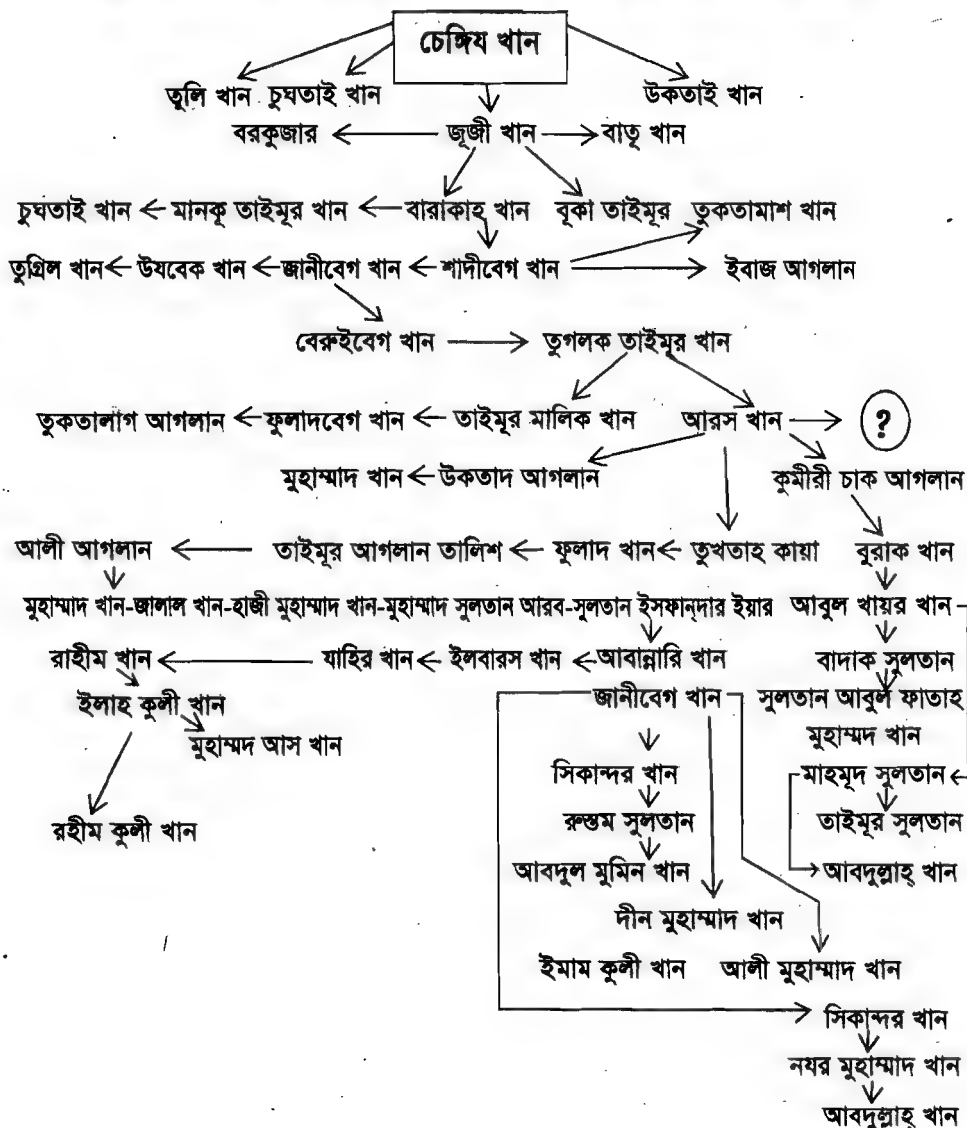 চেঙ্গিয খান
তুলি খান চুঘতাই খান উকতাই খান
বরকুজার জূজী খান বাতূ খান
চুঘতাই খান মানকূ তাইমূর খান বারাকাহ খান বূকা তাইমূর তুকতামাশ খান
তুগ্রিল খান উযবেক খান জানীবেগ খান শাদীবেগ খান ইবাজ আগলান
বেরুইবেগ খান তুগলক তাইমূর খান
তুকতালাগ আগলান ফুলাদবেগ খান তাইমূর মালিক খান আরস খান ?
মুহাম্মাদ খান উকতাদ আগলান কুমীরী চাক আগলান
আলী আগলান তাইমূর আগলান তালিশ ফুলাদ খান তুখতাহ কায়া বুরাক খান
মুহাম্মাদ খান-জালাল খান-হাজী মুহাম্মাদ খান-মুহাম্মাদ সুলতান আরব-সুলতান ইসফান্দার ইয়ার আবুল খায়র খান
রাহীম খান যাহির খান ইলবারস খান আবান্নারি খান বাদাক সুলতান
ইলাহ কুলী খান জানীবেগ খান সুলতান আবুল ফাতাহ
মুহাম্মদ আস খান মুহাম্মদ খান
সিকান্দর খান মাহমূদ সুলতান
রহীম কুলী খান রুস্তম সুলতান তাইমূর সুলতান
আবদুল মুমিন খান আবদুল্লাহ্ খান
দীন মুহাম্মাদ খান
ইমাম কুলী খান আলী মুহাম্মাদ খান
সিকান্দর খান
নযর মুহাম্মাদ খান
আবদুল্লাহ্ খান